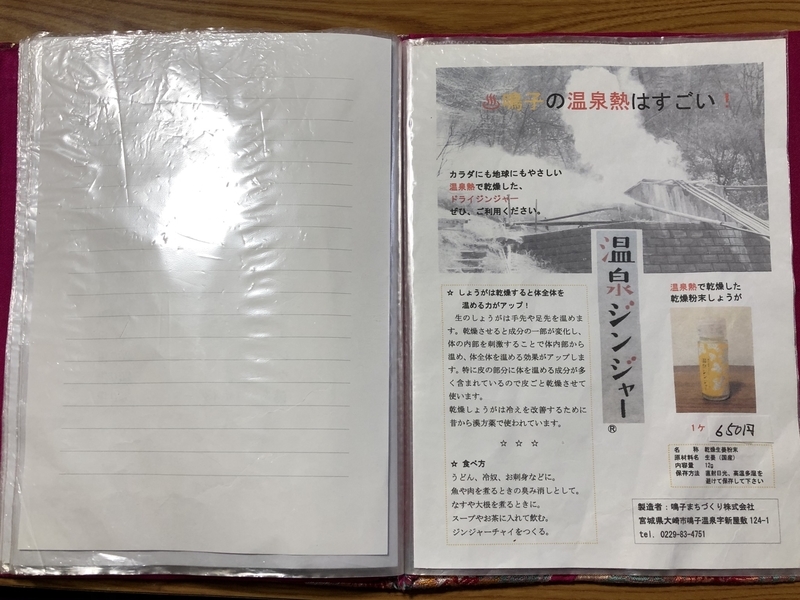 ♨鳴子の温泉熱はすごい！
カラダにも地球にもやさしい
温泉熱で乾燥した、
ドライジンジャー
ぜひ、ご利用ください。
温泉ジンジャー®
☆ しょうがは乾燥すると体全体を
温める力がアップ！
生のしょうがは手先や足先を温めま
す。乾燥させると成分の一部が変化し、
体の内部を刺激することで体内部から
温め、体全体を温める効果がアップしま
す。特に皮の部分に体を温める成分が多
く含まれているので皮ごと乾燥させて
使います。
乾燥しょうがは冷えを改善するために
昔から漢方薬で使われています。
☆ ☆ ☆
☆ 食べ方
うどん、冷奴、お刺身などに。
魚や肉を煮るときの臭み消しとして。
なすや大根を煮るときに。
スープやお茶に入れて飲む。
ジンジャーチャイをつくる。
温泉熱で乾燥した
乾燥粉末しょうが
1ケ 650円
名 称 乾燥生姜粉末
原材料名 生姜（国産）
内容量 12g
保存方法 直射日光、高温多湿を
避けて保存して下さい
製造者：鳴子まちづくり株式会社
宮城県大崎市鳴子温泉字新屋敷124-1
tel. 0229-83-4751